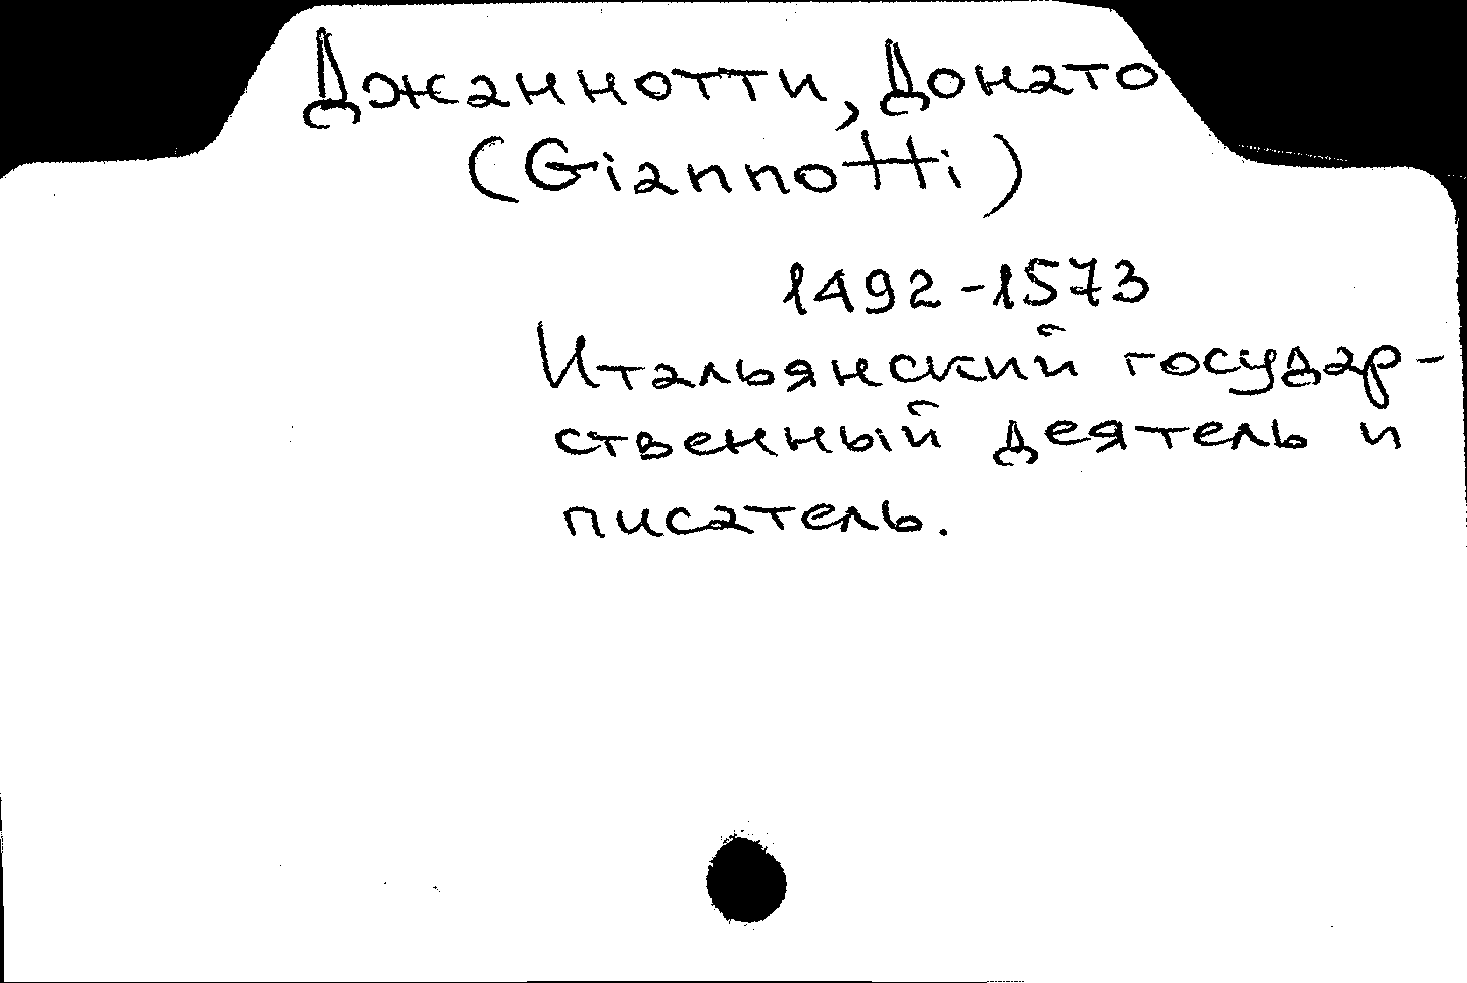 Джаннотти, Донато
(Giannotti)
1492-1573
Итальянский государ-
ственный деятель и
писатель.